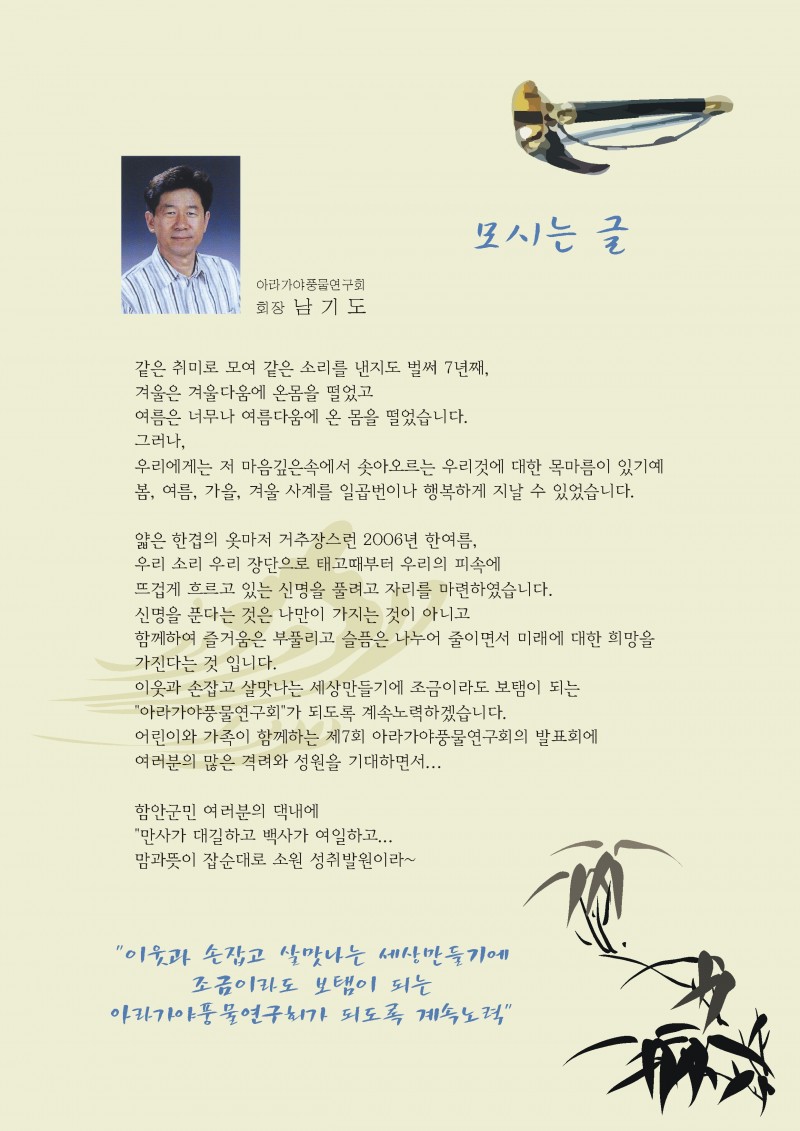 모시는 글
아라가야풍물연구회
회장 남 기 도
같은 취미로 모여 같은 소리를 낸지도 벌써 7년째,
겨울은 겨울다움에 온몸을 떨었고
여름은 너무나 여름다움에 온 몸을 떨었습니다.
그러나,
우리에게는 저 마음깊은속에서 솟아오르는 우리것에 대한 목마름이 있기에
봄, 여름, 가을, 겨울 사계를 일곱번이나 행복하게 지날 수 있었습니다.
얇은 한겹의 옷마저 거추장스런 2006년 한여름,
우리 소리 우리 장단으로 태고때부터 우리의 피속에
뜨겁게 흐르고 있는 신명을 풀려고 자리를 마련하였습니다.
신명을 푼다는 것은 나만이 가지는 것이 아니고
함께하여 즐거움은 부풀리고 슬픔은 나누어 줄이면서 미래에 대한 희망을
가진다는 것 입니다.
이웃과 손잡고 살맛나는 세상만들기에 조금이라도 보탬이 되는
"아라가야풍물연구회"가 되도록 계속노력하겠습니다.
어린이와 가족이 함께하는 제7회 아라가야풍물연구회의 발표회에
여러분의 많은 격려와 성원을 기대하면서...
함안군민 여러분의 댁내에
"만사가 대길하고 백사가 여일하고...
맘과뜻이 잡순대로 소원 성취발원이라~
"이웃과 손잡고 살맛나는 세상만들기에
조금이라도 보탬이 되는
아라가야풍물연구회가 되도록 계속노력"